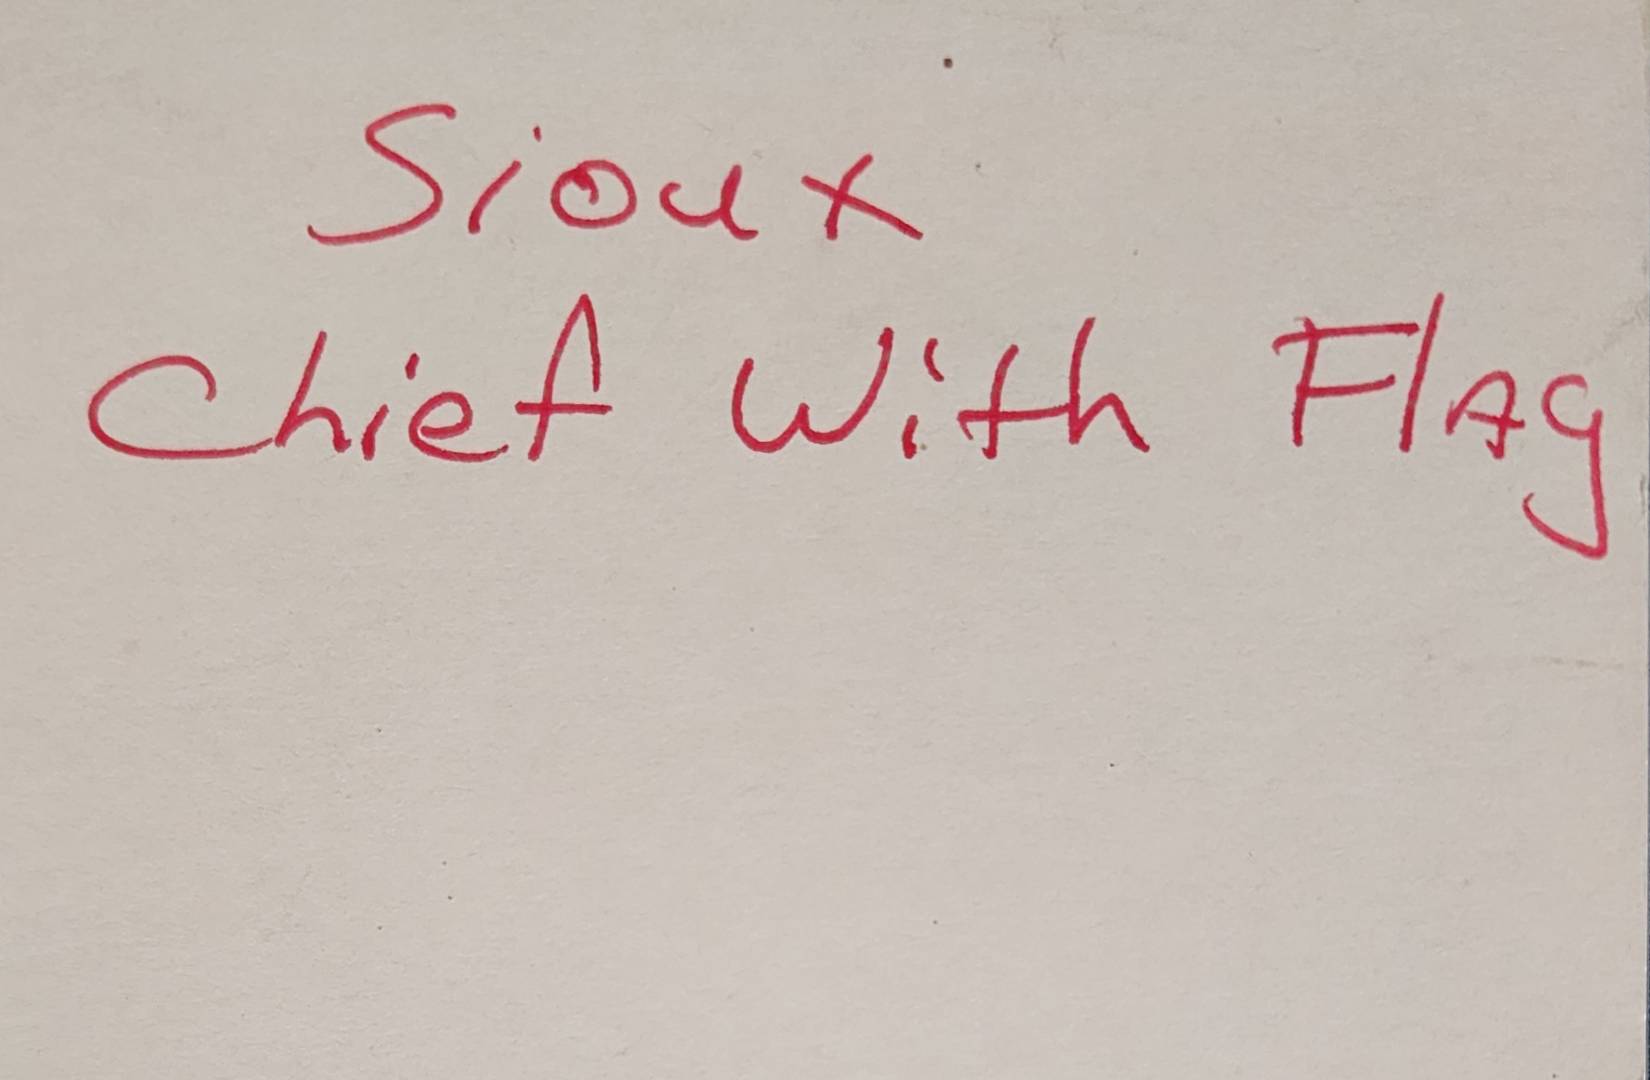 Sioux
Chief With FlAg